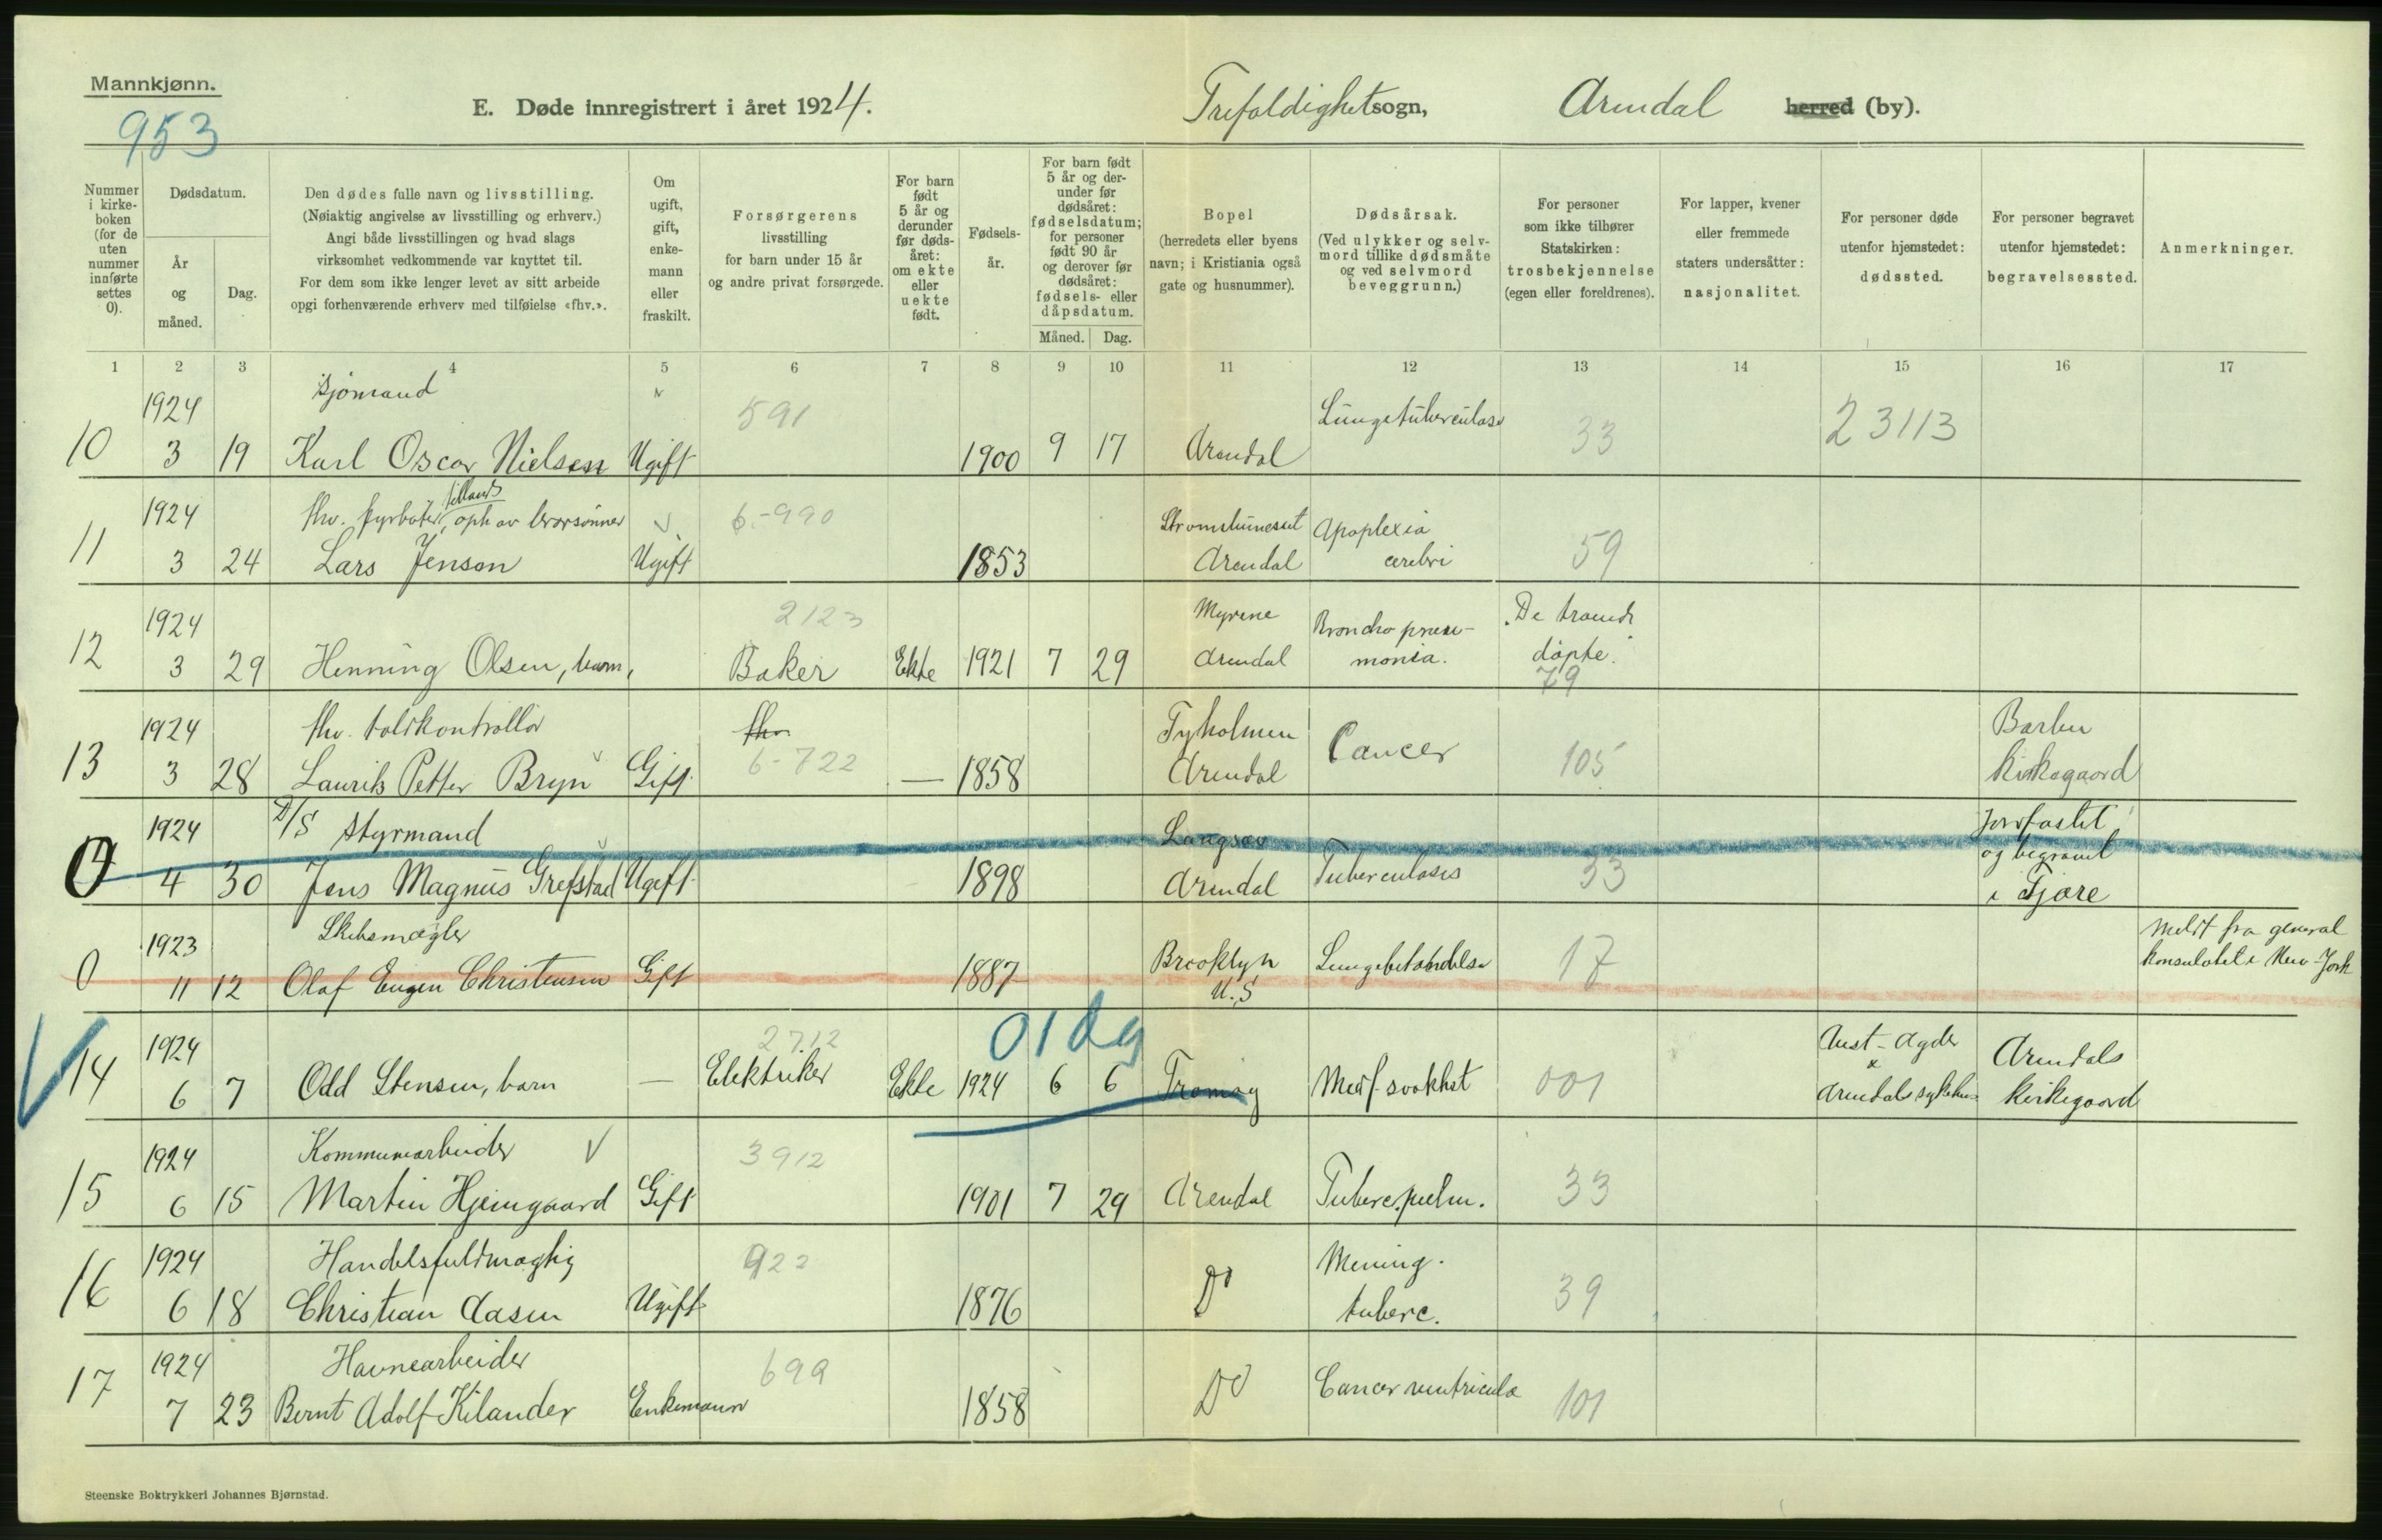 Mannkjønn.
953
E. Døde innregistrert i året 1924.
Trefoldighetsogn,
Arendal
herred (by).
Nummer i kirkeboken (for de uten nummer innførte settes 0).
Dødsdatum.
År og måned.
Dag.
Den dødes fulle navn og livsstilling.
(Nøiaktig angivelse av livsstilling og erhverv.)
Angi både livsstillingen og hvad slags
virksomhet vedkommende var knyttet til.
For dem som ikke lenger levet av sitt arbeide
opgi forhenværende erhverv med tilføielse «fhv.».
Om ugift, gift, enkemann eller fraskilt.
Forsørgerens
livsstilling
for barn under 15 år
og andre privat forsørgede.
For barn født 5 år og derunder før dødsåret: om ekte eller uekte født.
Fødselsår.
For barn født 5 år og derunder før dødsåret: fødselsdatum; for personer født 90 år og derover før dødsåret: fødsels- eller dåpsdatum.
Måned.
Dag.
Bopel
(herredets eller byens
navn; i Kristiania også
gate og husnummer).
Dødsårsak.
(Ved ulykker og selvmord tillike dødsmåte
og ved selvmord
beveggrunn.)
For personer
som ikke tilhører
Statskirken:
trosbekjennelse
(egen eller foreldrenes).
For lapper, kvener
eller fremmede
staters undersåtter:
nasjonalitet.
For personer døde
utenfor hjemstedet:
dødssted.
For personer begravet
utenfor hjemstedet:
begravelsessted.
Anmerkninger.
1 2 3 4 5 6 7 8 9 10 11 12 13 14 15 16 17
1924 Sjömand 591 Lungetuberculose 33 23113
10 3 19 Karl Oscar Nielsen Ugift 1900 9 17 Arendal
1924 fhv. fyrbøter, oph av brorsönner 6-990 Apoplexia
11 3 24 Lars Jenson Ugift 1853 Arendal cerebri 59
1924 2123 Myrene Broncho pneu- De troende
12 3 29 Henning Olsen, barn, Baker Ekte 1921 7 29 Arendal monia. döpte.
79
1924 fhv. toldkontrollör fhv. Tyholmen Cancer 105 Barbu
13 3 28 Laurits Petter Bryn Gift 6-722 — 1858 Arendal Kirkegaard
1924 D/S Styrmand Langsæ Jordfæstet
0 4 30 Jens Magnus Grefstad Ugift 1898 Arendal Tuberculosis 33 og begravet
i Fjære
1923 Skibsmægler Meldt fra general
0 11 12 Olaf Eugen Christensen Gift 1887 Brooklyn Lungebetændelse 17 konsulatet i New-York
U.S
1924 2712 01 dg Aust-Agder Arendals
14 6 7 Odd Stensen, barn — Elektriker Ekte 1924 6 6 Tromøy Medf svakhet 001 Arendals sykehus Kirkegaard
1924 Kommunearbeider 3912
15 6 15 Martin Hjemgaard Gift 1901 7 29 Arendal Tuberc. pulm. 33
1924 Handelsfuldmægtig 922 Mening.
16 6 18 Christian Aasen Ugift 1876 Do tuberc. 39
1924 Havnearbeider 699
17 7 23 Bernt Adolf Kilander Enkemann 1858 Do Cancer ventricula 101
Steenske Boktrykkeri Johannes Bjørnstad.